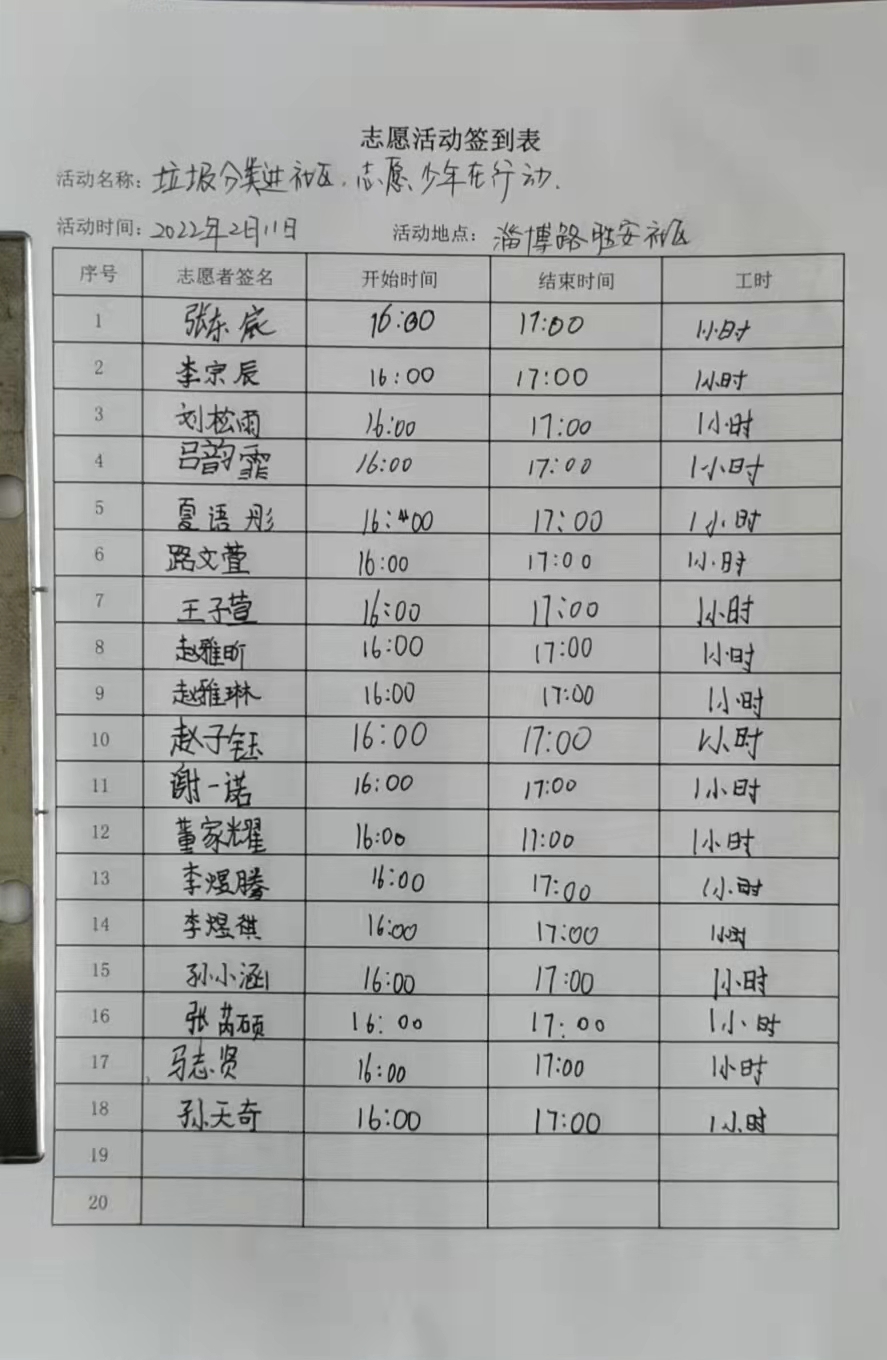 志愿活动签到表
活动名称：垃圾分类进社区，志愿少年在行动.
活动时间：2022年2月11日 活动地点：淄博路临安社区
序号 志愿者签名 开始时间 结束时间 工时
1 张东宸 16:00 17:00 1小时
2 李宗辰 16:00 17:00 1小时
3 刘松雨 16:00 17:00 1小时
4 吕韵霏 16:00 17:00 1小时
5 夏语彤 16:00 17:00 1小时
6 路文萱 16:00 17:00 1小时
7 王子萱 16:00 17:00 1小时
8 赵雅昕 16:00 17:00 1小时
9 赵雅琳 16:00 17:00 1小时
10 赵子钰 16:00 17:00 1小时
11 谢一诺 16:00 17:00 1小时
12 董家耀 16:00 17:00 1小时
13 李煜腾 16:00 17:00 1小时
14 李煜祺 16:00 17:00 1小时
15 孙小涵 16:00 17:00 1小时
16 张芮硕 16:00 17:00 1小时
17 马志贤 16:00 17:00 1小时
18 孙天奇 16:00 17:00 1小时
19
20